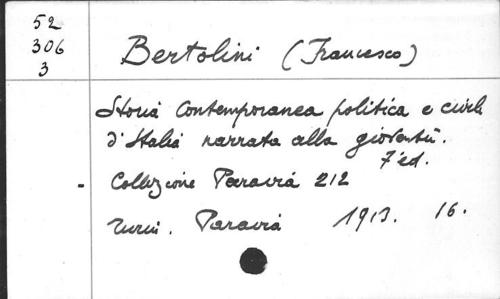 52
306
3
Bertolini (Francesco)
Storia contemporanea politica e civile
d'Italia narrata alla gioventù.
7 éd.
- Collezione Paravia 212
Turin. Paravia 1913. 16.